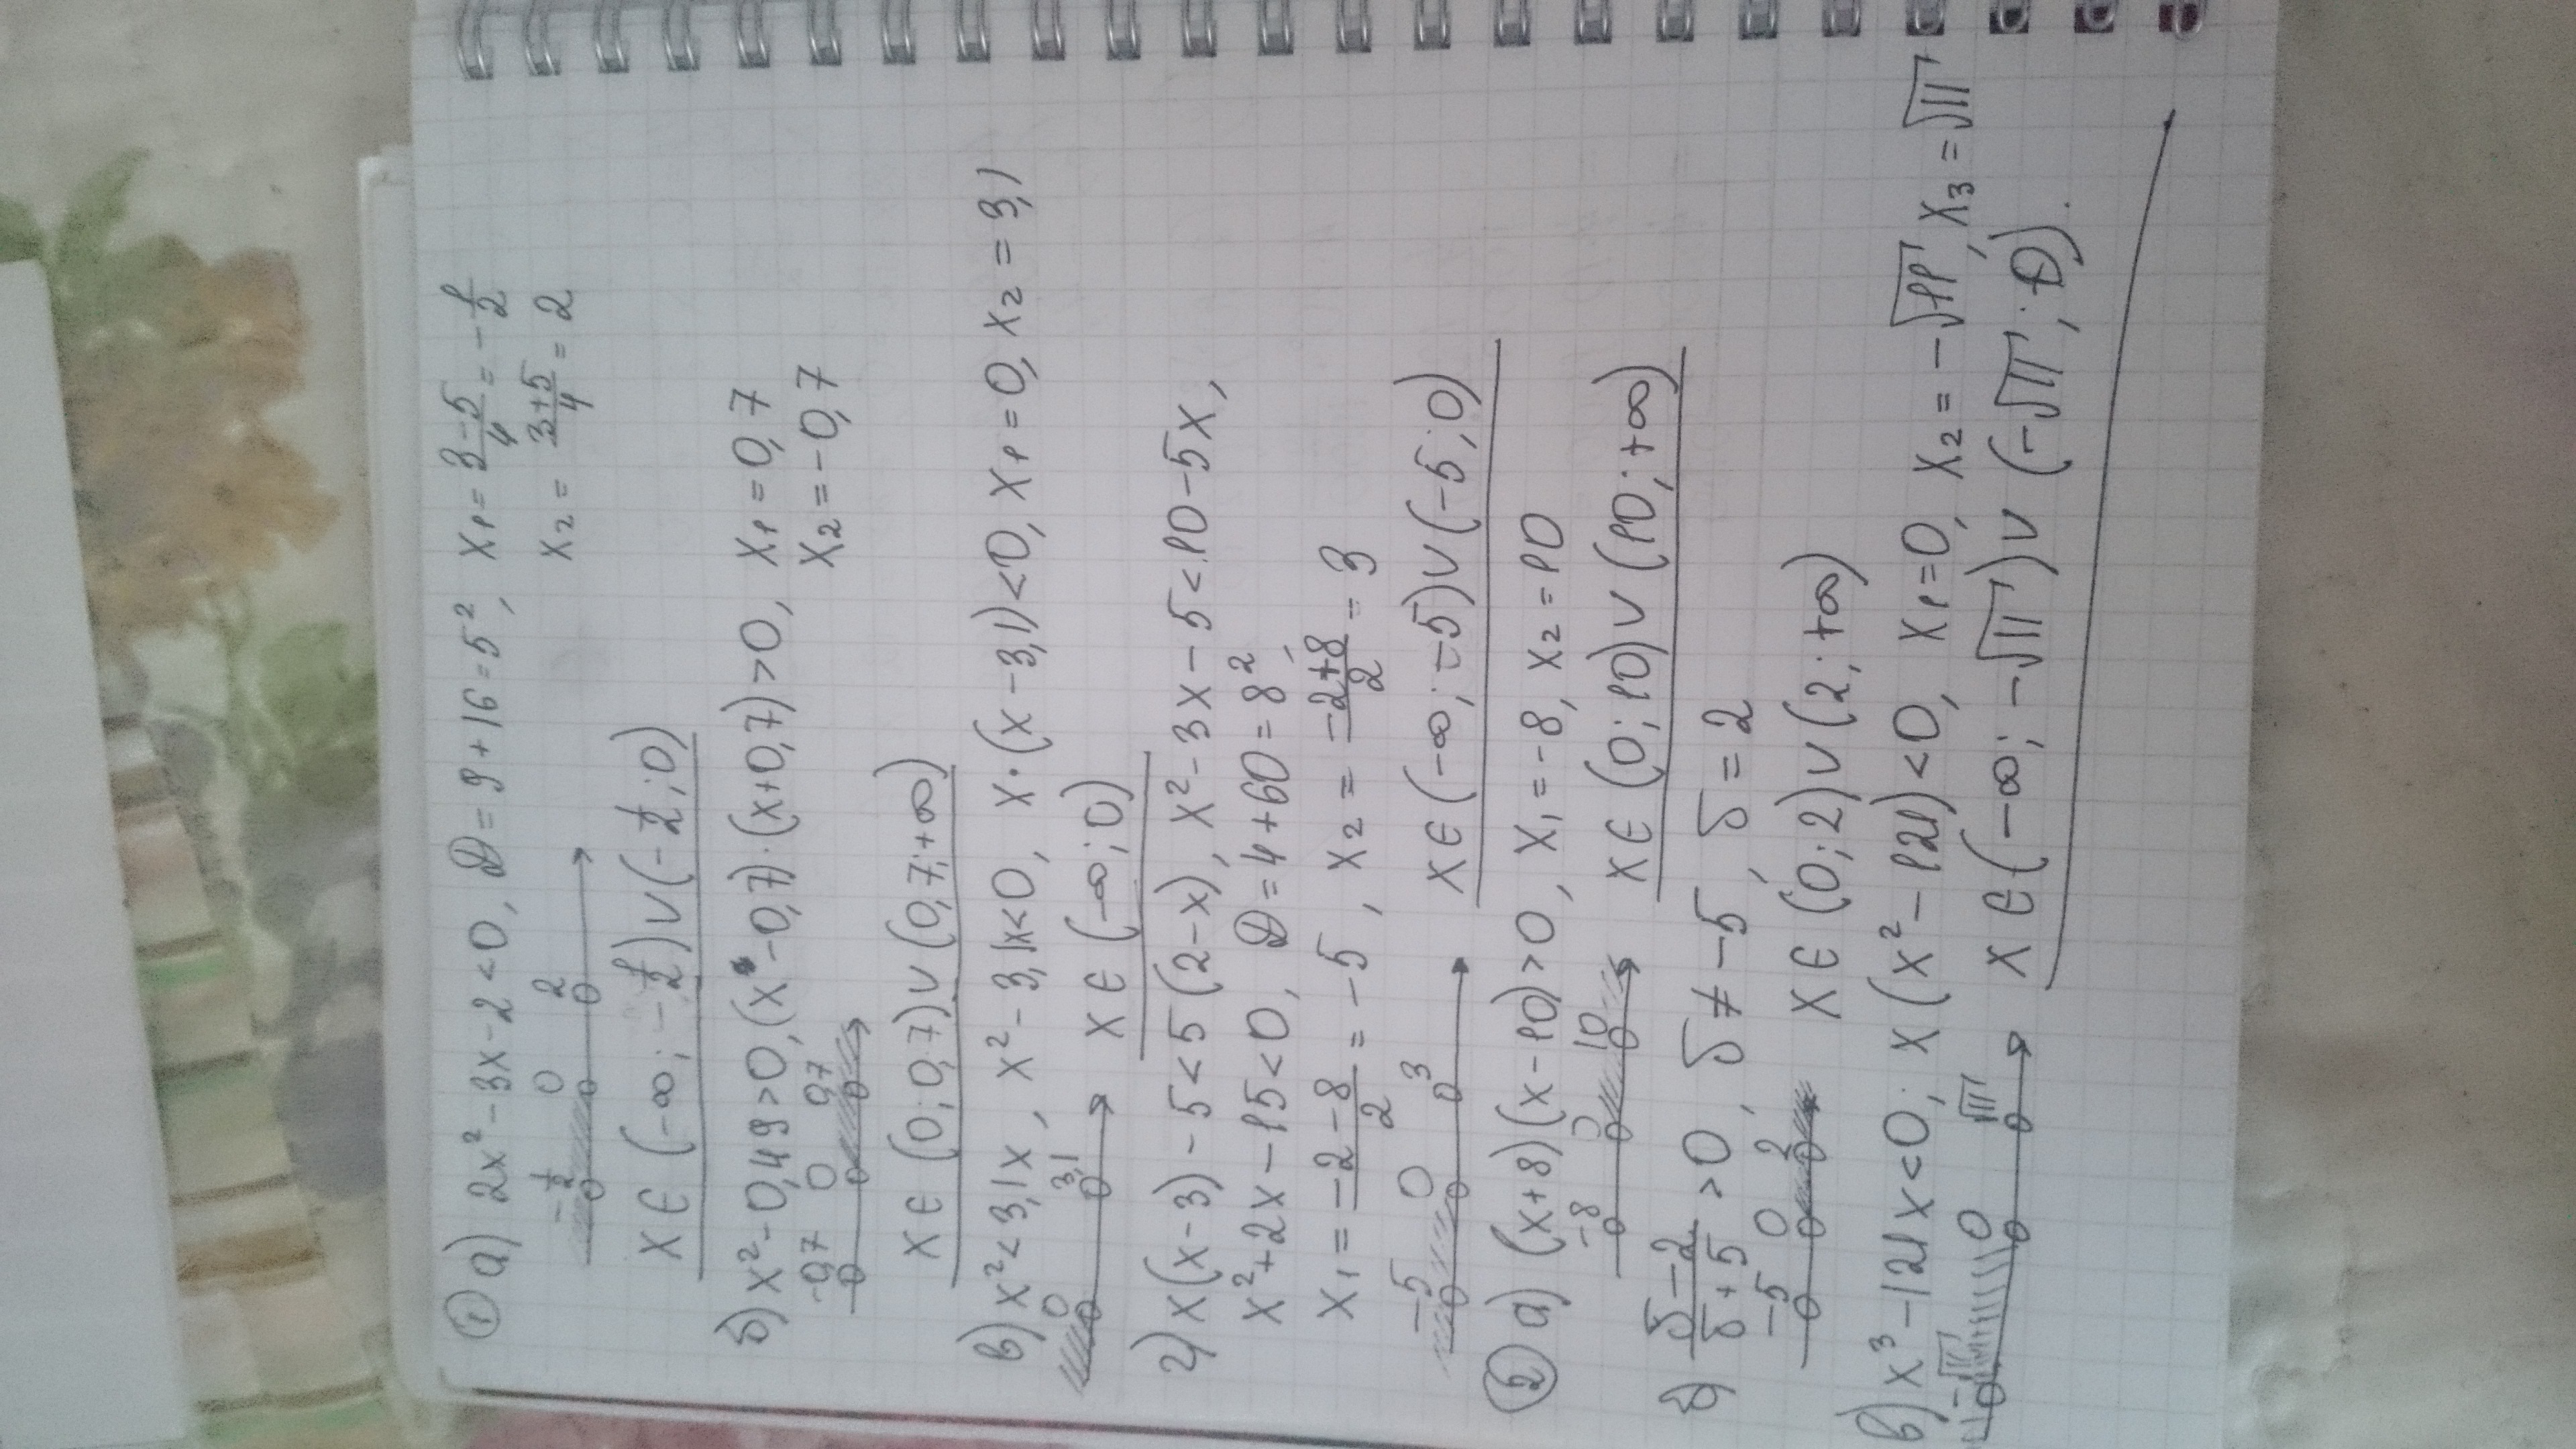 ① а) 2x² - 3x - 2 < 0, D = 9 + 16 = 5², x₁ = (3-5)/4 = -1/2
-1/2 0 2 x₂ = (3+5)/4 = 2
x ∈ (-∞; -1/2) ∪ (-1/2; 0)
б) x² - 0,49 > 0, (x - 0,7)·(x + 0,7) > 0, x₁ = 0,7
-0,7 0 0,7 x₂ = -0,7
x ∈ (0; 0,7) ∪ (0,7; +∞)
в) x² < 3,1x, x² - 3,1x < 0, x·(x - 3,1) < 0, x₁ = 0, x₂ = 3,1
0 3,1 x ∈ (-∞; 0)
г) x(x-3) - 5 < 5(2-x), x² - 3x - 5 < 10 - 5x,
x² + 2x - 15 < 0, D = 4 + 60 = 8²,
x₁ = (-2-8)/2 = -5, x₂ = (-2+8)/2 = 3
-5 0 3 x ∈ (-∞; -5) ∪ (-5; 0)
② а) (x+8)(x-10) > 0, x₁ = -8, x₂ = 10
-8 0 10 x ∈ (0; 10) ∪ (10; +∞)
б) (б-2)/(б+5) > 0, б ≠ -5, б = 2
-5 0 2 x ∈ (0; 2) ∪ (2; +∞)
в) x³ - 121x < 0; x(x² - 121) < 0, x₁ = 0, x₂ = -√11, x₃ = √11
-√11 0 √11 x ∈ (-∞; -√11) ∪ (-√11; 0).